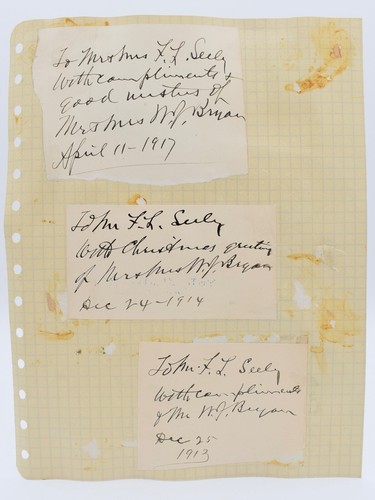 To Mr & Mrs F. L. Seely
With compliments &
good wishes of
Mr & Mrs W. J. Bryan
April 11 - 1917
To Mr F. L. Seely
With Christmas greeting
of Mr & Mrs W. J. Bryan
Dec 24 - 1914
To Mr. F. L. Seely
With compliments
of Mr W. J. Bryan
Dec 25
1913